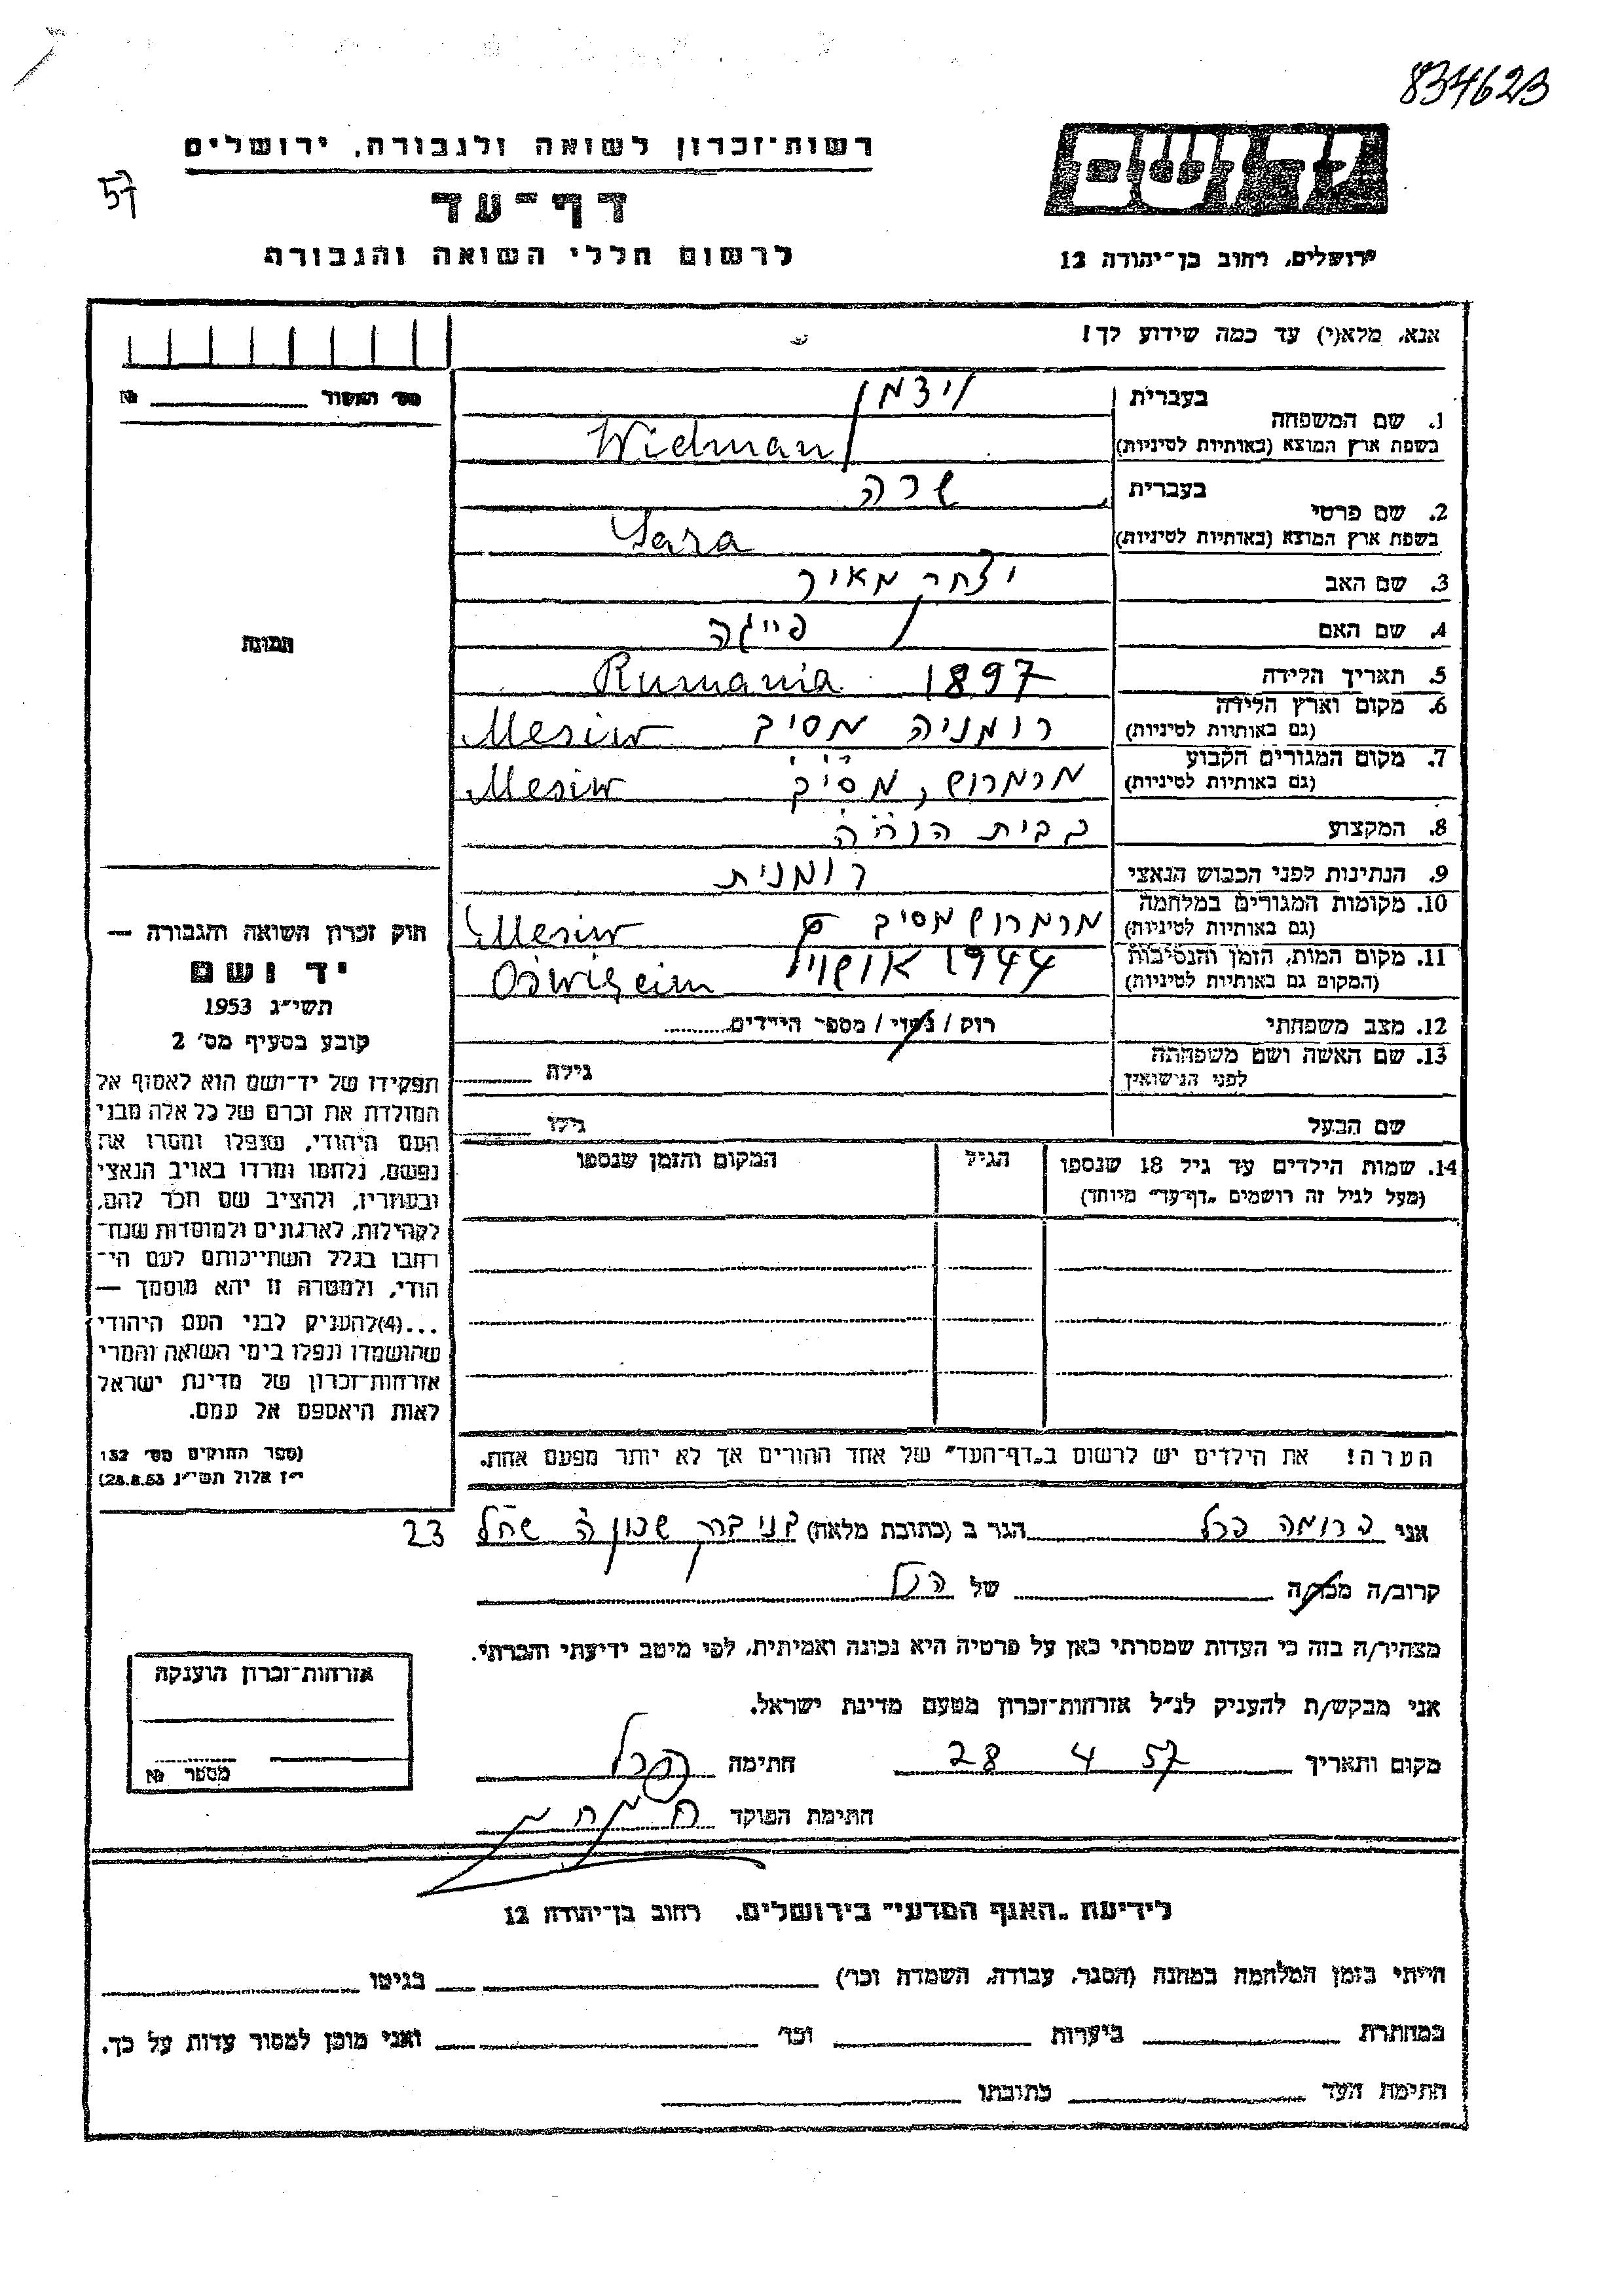 834623
רשות־זכרון לשואה ולגבורה, ירושלים
57
דף־עד
לרשום חללי השואה והגבורה
ירושלים, רחוב בן־יהודה 12
אנא, מלא(י) עד כמה שידוע לך!
מס׳ האשור № 
1. שם המשפחה בעברית וידמן
בשפת ארץ המוצא (באותיות לטיניות) Widman
2. שם פרטי בעברית שרה
בשפת ארץ המוצא (באותיות לטיניות) Sara
3. שם האב יצחק מאיר
4. שם האם פייגה
תמונה
5. תאריך הלידה 1897 Rumania
6. מקום וארץ הלידה רומניה מסיב Mesiw
(גם באותיות לטיניות)
7. מקום המגורים הקבוע מרמרוש, מסיב Mesiw
(גם באותיות לטיניות)
8. המקצוע
9. הנתינות לפני הכבוש הנאצי רומנית
10. מקומות המגורים במלחמה מרמרוש מסיב Mesiw
(גם באותיות לטיניות)
11. מקום המות, הזמן והנסיבות 1944 Oswiseim
(המקום גם באותיות לטיניות)
12. מצב משפחתי רווק / נשוי / מספר הילדים
13. שם האשה ושם משפחתה גילה
לפני הנישואין
שם הבעל גילו
14. שמות הילדים עד גיל 18 שנספו הגיל המקום והזמן שנספו
(מעל לגיל זה רושמים „דף־עד” מיוחד)
חוק זכרון השואה והגבורה —
יד ושם
תשי״ג 1953
קובע בסעיף מס׳ 2
תפקידו של יד־ושם הוא לאסוף אל
המולדת את זכרם של כל אלה מבני
העם היהודי, שנפלו ומסרו את
נפשם, נלחמו ומרדו באויב הנאצי
ובעוזריו, ולהציב שם וזכר להם,
לקהילות, לארגונים ולמוסדות שנח־
רבו בגלל השתייכותם לעם הי־
הודי, ולמטרה זו יהא מוסמך —
...(4)להעניק לבני העם היהודי
שהושמדו ונפלו בימי השואה והמרי
אזרחות־זכרון של מדינת ישראל
לאות היאספם אל עמם.
(ספר החוקים מס׳ 132
י״ז אלול תשי״ג 28.8.53)
הערה! את הילדים יש לרשום ב„דף־העד” של אחד ההורים אך לא יותר מפעם אחת.
אני ברומה פרל הגר ב (כתובת מלאה) בני ברק שכון 23
קרוב/ה מכר/ה של הנ״ל
מצהיר/ה בזה כי העדות שמסרתי כאן על פרטיה היא נכונה ואמיתית, לפי מיטב ידיעתי והכרתי.
אני מבקש/ת להעניק לנ״ל אזרחות־זכרון מטעם מדינת ישראל.
מקום ותאריך 28 4 57 חתימה
חתימת הפוקד
אזרחות־זכרון הוענקה
מספר №
לידיעת „האגף המדעי” בירושלים, רחוב בן־יהודה 12
הייתי בזמן המלחמה במחנה (הסגר, עבודה, השמדה וכו׳) בגיטו
במחתרת ביערות וכו׳ ואני מוכן למסור עדות על כך.
חתימת העד כתובתו